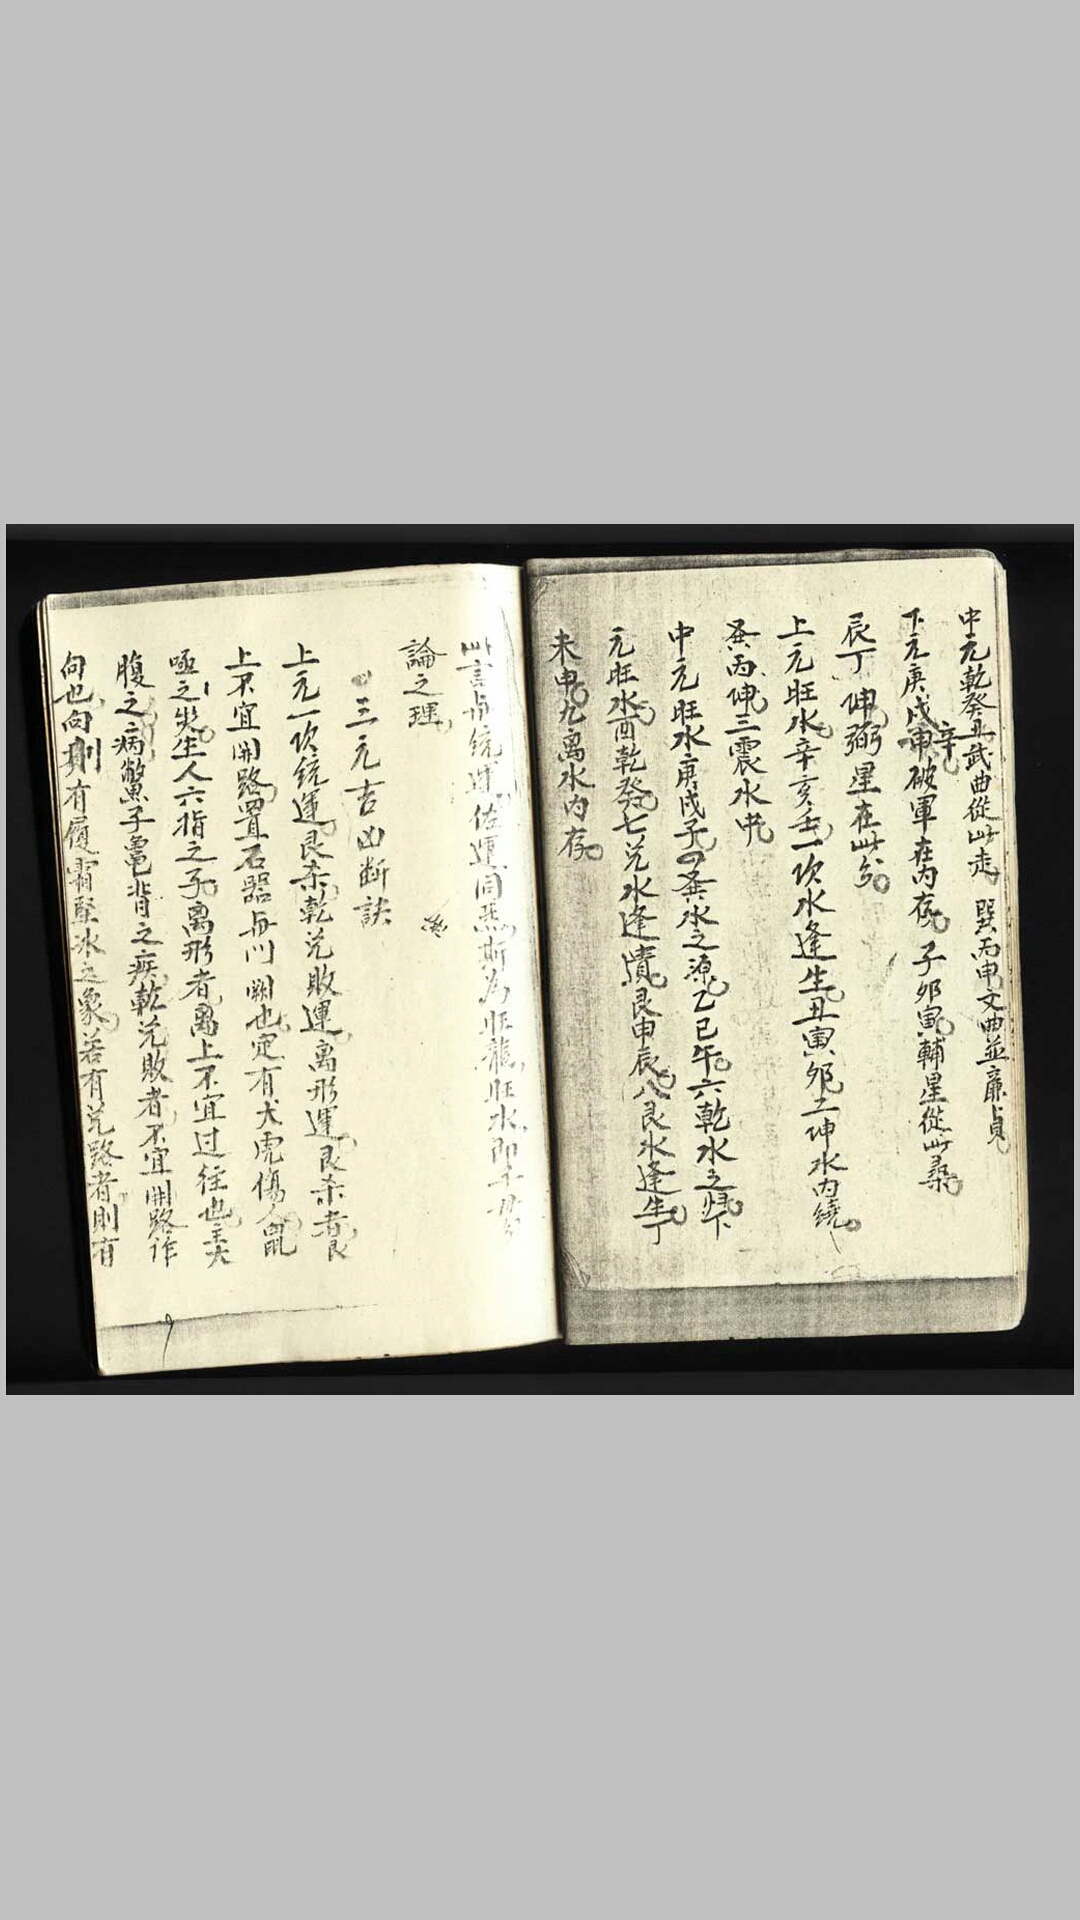 中元乾癸丑武曲從此走 巽丙申文曲並廉貞
下元庚戌辛破軍在內存 子卯寅輔星從此尋
辰丁坤弼星在此分
上元旺水辛亥壬一坎水逢生丑寅卯二坤水內繞
丙坤三震水
中元旺水庚戌子四水之源乙巳午六乾水之下
元旺水酉乾癸七兌水逢艮申辰八艮水逢生丁
未申九离水內存
此言統運佐運同然斯為旺龍旺水即
論之理
三元吉凶断訣
上元一坎統運艮杀乾兌敗運离形運艮杀者艮
上不宜開路置石器与门闕也定有犬虎傷人鼠
之生人六指之子离形者离上不宜过往也主大
腹之病鱉子龜背之疾乾兌敗者不宜開路作
向也向則有履霜堅冰之象若有兌路者則有